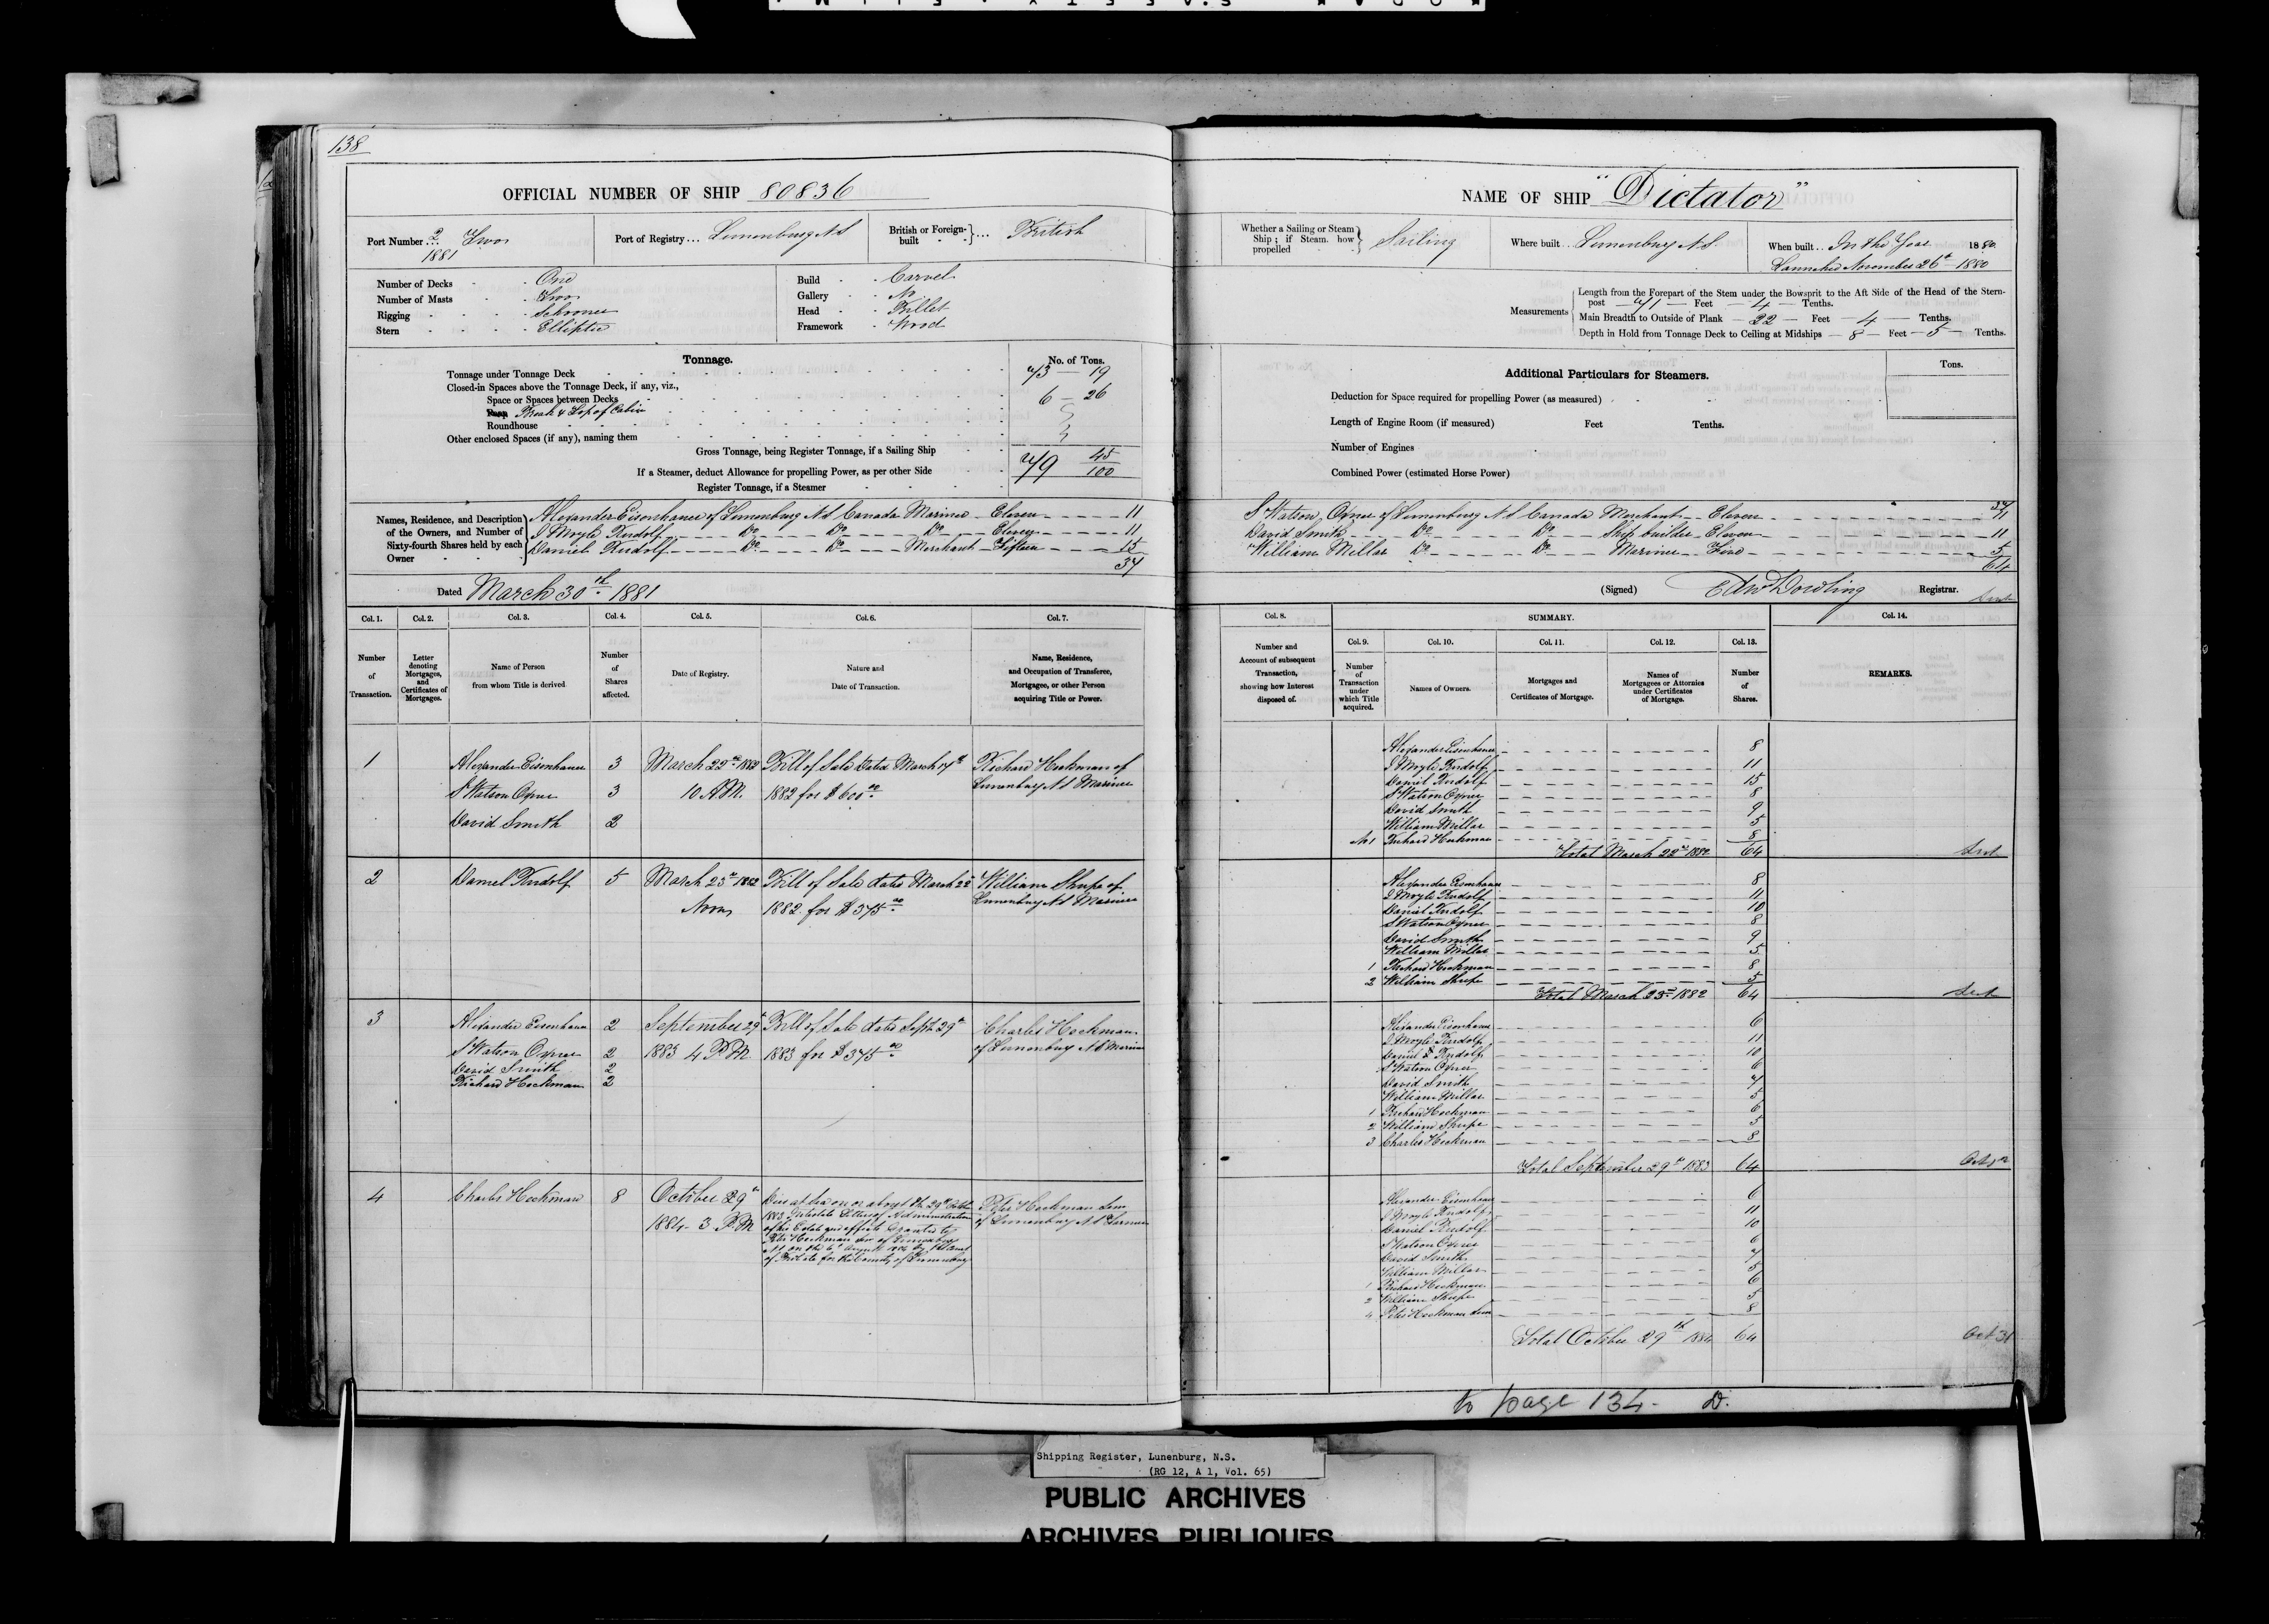 138
OFFICIAL NUMBER OF SHIP 80836
Port Number 2 Two
1881
Port of Registry... Lunenburg N S
British or Foreign-built ... British
Number of Decks One
Number of Masts Two
Rigging Schooner
Stern Elliptic
Build Carvel
Gallery No
Head Billet
Framework Wood
Tonnage.
No. of Tons.
Tonnage under Tonnage Deck 73 — 19
Closed-in Spaces above the Tonnage Deck, if any, viz.,
Space or Spaces between Decks 6 — 26
Poop Break & Top of Cabin
Roundhouse
Other enclosed Spaces (if any), naming them
Gross Tonnage, being Register Tonnage, if a Sailing Ship 79 45/100
If a Steamer, deduct Allowance for propelling Power, as per other Side
Register Tonnage, if a Steamer
Names, Residence, and Description of the Owners, and Number of Sixty-fourth Shares held by each Owner
Alexander Eisenhauer of Lunenburg N S Canada Mariner Eleven 11
J Moyle Rudolf Do Do Do Eleven 11
Daniel Rudolf Do Do Merchant Fifteen 15
37
Dated March 30th 1881
Col. 1. Col. 2. Col. 3. Col. 4. Col. 5. Col. 6. Col. 7.
Number of Transaction.
Letter denoting Mortgages, and Certificates of Mortgages.
Name of Person from whom Title is derived
Number of Shares affected.
Date of Registry.
Nature and Date of Transaction.
Name, Residence, and Occupation of Transferee, Mortgagee, or other Person acquiring Title or Power.
1 Alexander Eisenhauer 3 March 22nd 1882 Bill of Sale dated March 17th Richard Heckman of
S Watson Oxner 3 10 A.M. 1882 for $600.00 Lunenburg N S Mariner
David Smith 2
2 Daniel Rudolf 5 March 23rd 1882 Bill of Sale dated March 22nd William Shupe of
Noon 1882 for $375.00 Lunenburg N S Mariner
3 Alexander Eisenhauer 2 September 29th Bill of Sale dated Sept. 29th Charles Heckman
S Watson Oxner 2 1883 4 P.M 1883 for $375.00 of Lunenburg N S Mariner
David Smith 2
Richard Heckman 2
4 Charles Heckman 8 October 29th Died at Sea on or about the 29th October Peter Heckman Senr
1884 - 3 P.M 1883 Intestate Letters of Administration of Lunenburg N S Farmer
of his Estate and effects Granted to
Peter Heckman Snr of Lunenburg
N S on the August by the Court
of Probate for the County of Lunenburg
NAME OF SHIP "Dictator"
Whether a Sailing or Steam Ship; if Steam, how propelled Sailing
Where built Lunenburg N.S.
When built In the Year 1880
Launched November 26th 1880
Measurements
Length from the Forepart of the Stem under the Bowsprit to the Aft Side of the Head of the Stern-
post — 71 — Feet — 4 — Tenths.
Main Breadth to Outside of Plank — 22 — Feet — 4 — Tenths.
Depth in Hold from Tonnage Deck to Ceiling at Midships — 8 — Feet — 5 — Tenths.
Additional Particulars for Steamers.
Tons.
Deduction for Space required for propelling Power (as measured)
Length of Engine Room (if measured) Feet Tenths.
Number of Engines
Combined Power (estimated Horse Power)
37
S Watson Oxner of Lunenburg N S Canada Merchant Eleven 11
David Smith Do Do Ship builder Eleven 11
William Millar Do Do Mariner Five 5
64
(Signed) Edw Dowling Registrar.
Col. 8. SUMMARY. Col. 14.
Col. 9. Col. 10. Col. 11. Col. 12. Col. 13.
Number and Account of subsequent Transaction, showing how Interest disposed of.
Number of Transaction under which Title acquired.
Names of Owners.
Mortgages and Certificates of Mortgage.
Names of Mortgagees or Attornies under Certificates of Mortgage.
Number of Shares.
REMARKS.
Alexander Eisenhauer 8
J Moyle Rudolf 11
Daniel Rudolf 15
S Watson Oxner 8
David Smith 9
William Millar 5
No 1 Richard Heckman 8
Total March 22nd 1882 64
Alexander Eisenhauer 8
J Moyle Rudolf 11
Daniel Rudolf 10
S Watson Oxner 8
David Smith 9
William Millar 5
1 Richard Heckman 8
2 William Shupe 5
Total March 23rd 1882 64
Alexander Eisenhauer 6
J Moyle Rudolf 11
Daniel Rudolf 10
S Watson Oxner 6
David Smith 7
William Millar 5
1 Richard Heckman 6
2 William Shupe 5
3 Charles Heckman 8
Total September 29th 1883 64
Alexander Eisenhauer 6
J Moyle Rudolf 11
Daniel Rudolf 10
S Watson Oxner 6
David Smith 7
William Millar 5
1 Richard Heckman 6
2 William Shupe 5
4 Peter Heckman Senr 8
Total October 29th 1884 64 Oct 31
to page 134 - D.
Shipping Register, Lunenburg, N.S.
(RG 12, A 1, Vol. 65)
PUBLIC ARCHIVES
ARCHIVES PUBLIQUES